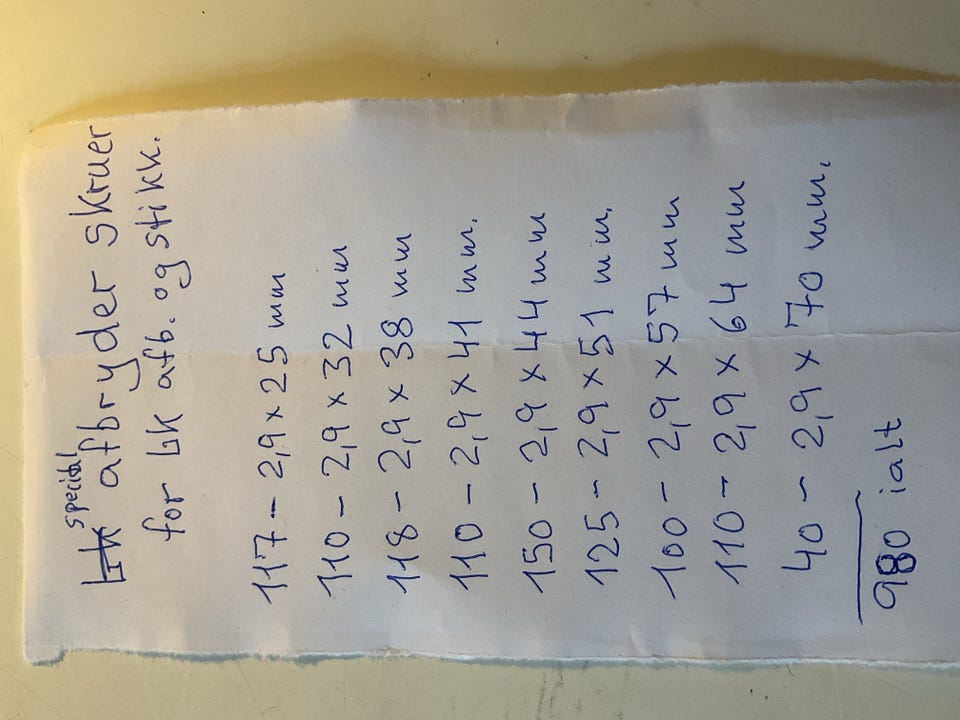 special
LK afbryder skruer
for LK afb. og stikk.
117 - 2,9 x 25 mm
110 - 2,9 x 32 mm
118 - 2,9 x 38 mm
110 - 2,9 x 41 mm.
150 - 2,9 x 44 mm
125 - 2,9 x 51 mm.
100 - 2,9 x 57 mm
110 - 2,9 x 64 mm
40 - 2,9 x 70 mm.
980 ialt